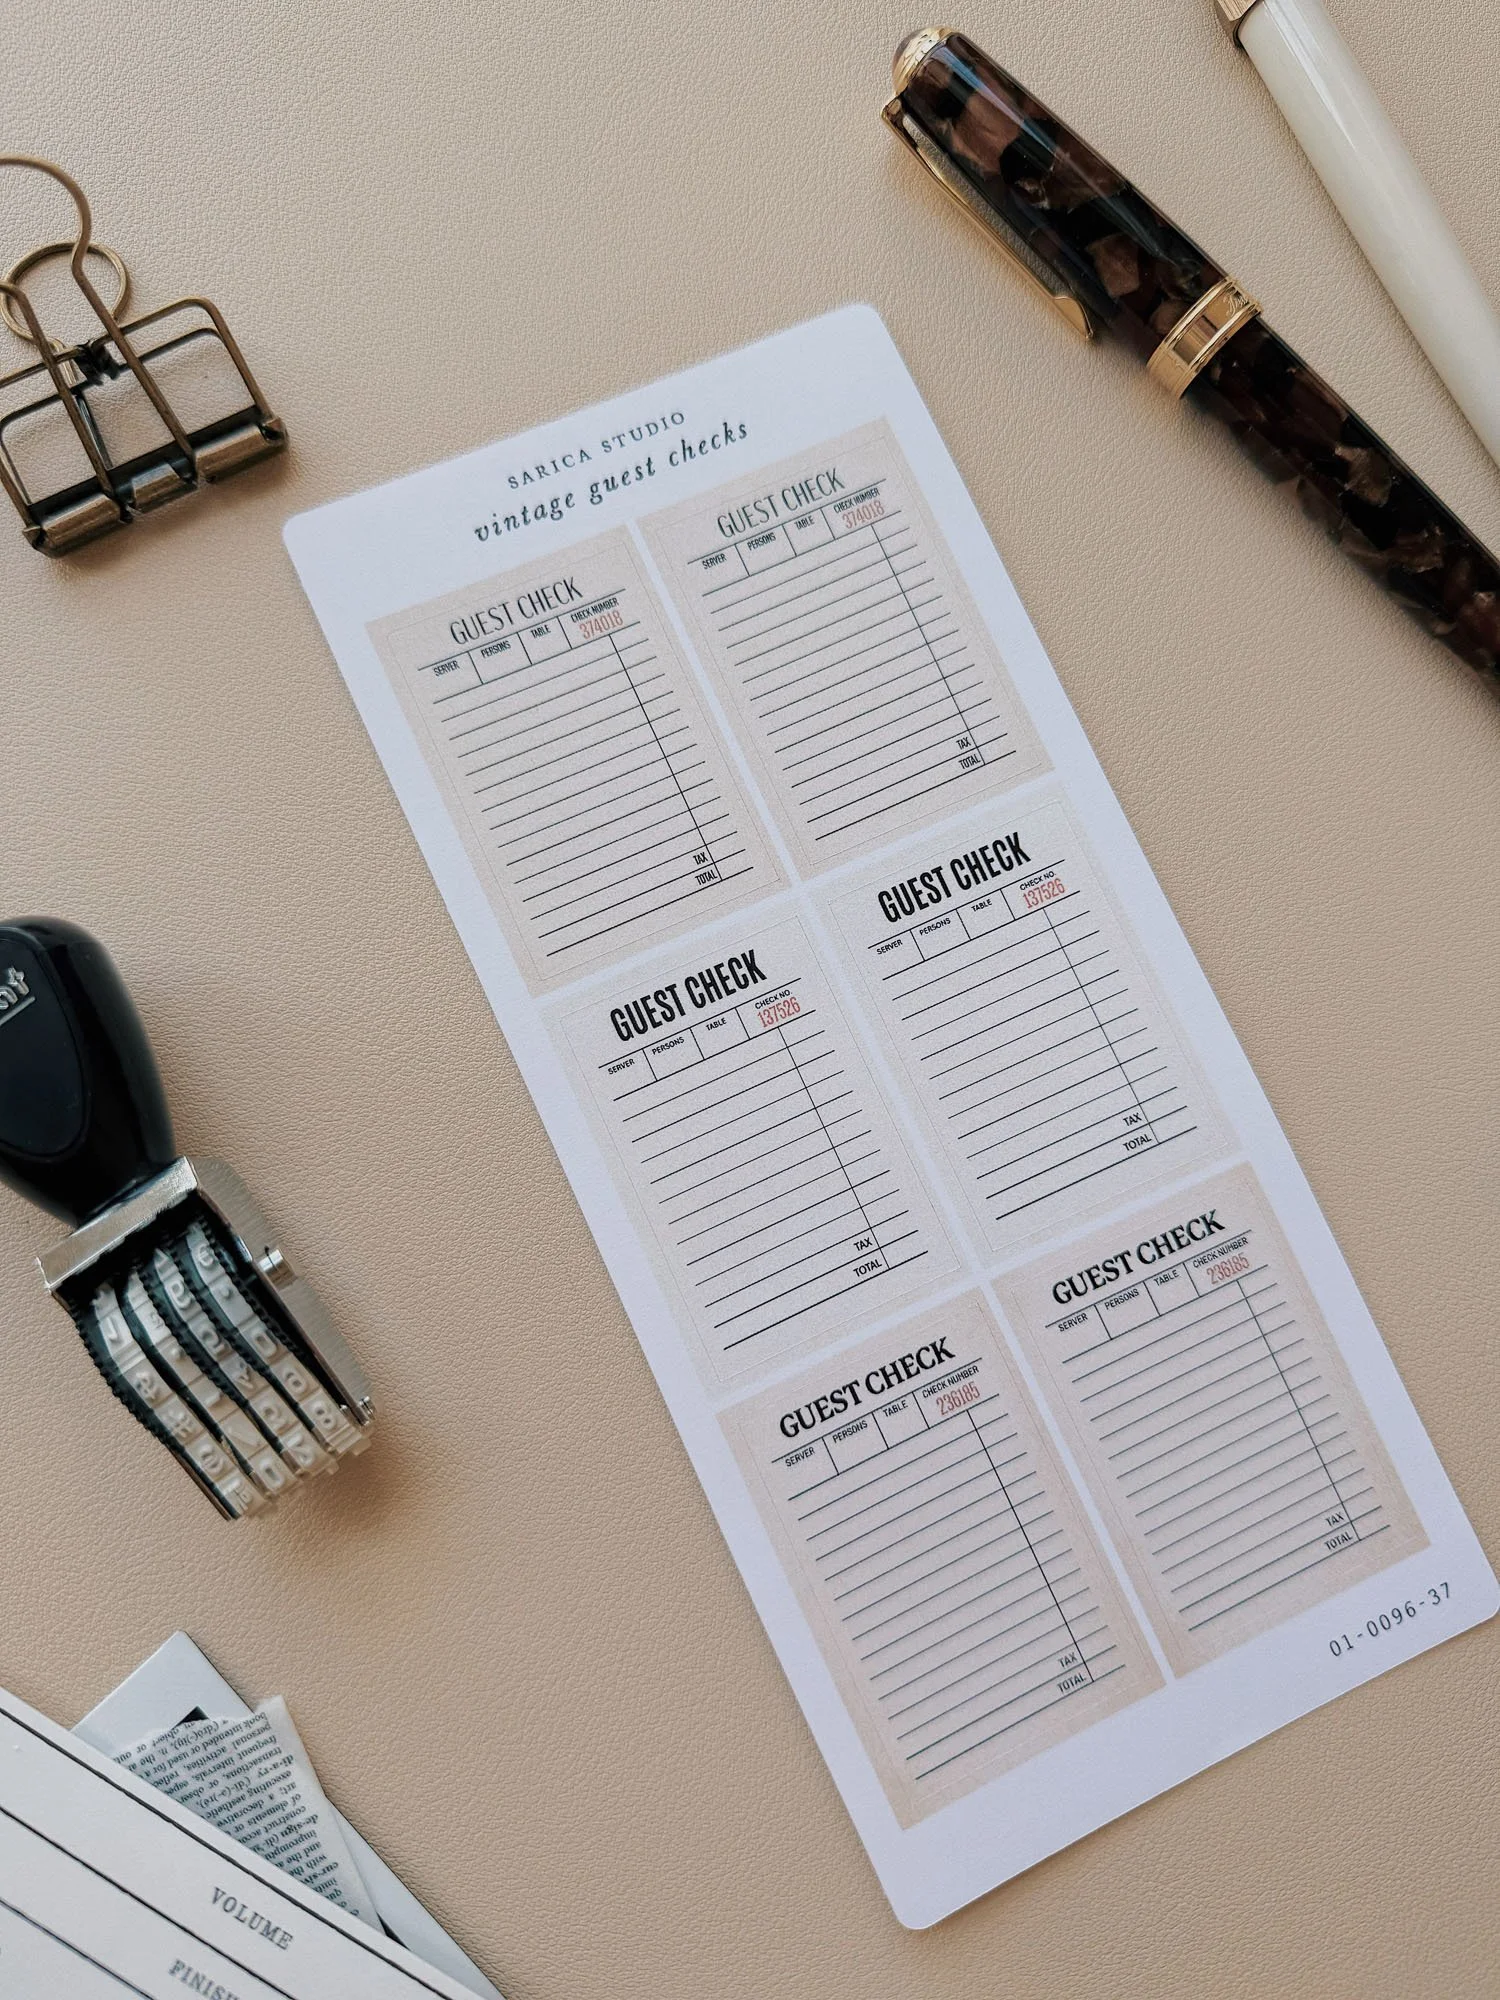 SARICA STUDIO
vintage guest checks
GUEST CHECK
SERVER PERSONS TABLE CHECK NUMBER
374018
TAX
TOTAL
GUEST CHECK
SERVER PERSONS TABLE CHECK NUMBER
374018
TAX
TOTAL
GUEST CHECK
SERVER PERSONS TABLE CHECK NO.
137526
TAX
TOTAL
GUEST CHECK
SERVER PERSONS TABLE CHECK NO.
137526
TAX
TOTAL
GUEST CHECK
SERVER PERSONS TABLE CHECK NUMBER
236185
TAX
TOTAL
GUEST CHECK
SERVER PERSONS TABLE CHECK NUMBER
236185
TAX
TOTAL
01-0096-37
VOLUME